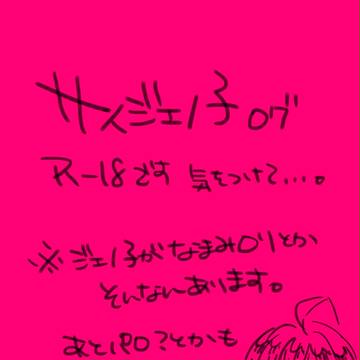 サイジェノ子ログ
R-18です 気をつけて...。
※ジェノ子がなまみロリとか
そんなんあります。
あとパロ?とかも